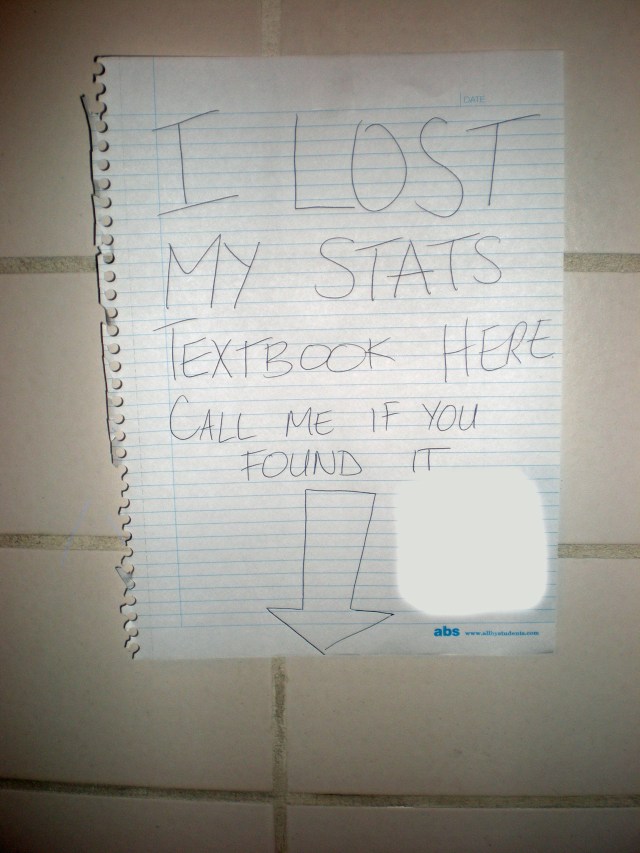 DATE
I LOST
MY STATS
TEXTBOOK HERE
CALL ME IF YOU
FOUND IT
abs